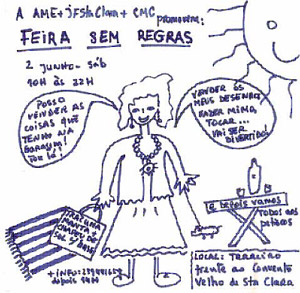 A AME + JFSta Clara + CMC
promovem:
FEIRA SEM REGRAS
2 JUNHO - SÁB
10H ÀS 22H
POSSO
VENDER AS
COISAS QUE
TENHO NA
GARAGEM!
TOU LÁ!
VENDER OS
MEUS DESENHOS,
FAZER MIMO,
TOCAR...
VAI SER
DIVERTIDO!
TRAZ UMA
MANTA +
CHAPÉU DE
SOL P/ BASE
e depois vamos
TODOS AOS
PETISCOS
+ INFO:
depois
LOCAL: TERREIRO
frente ao Convento
Velho de Sta Clara